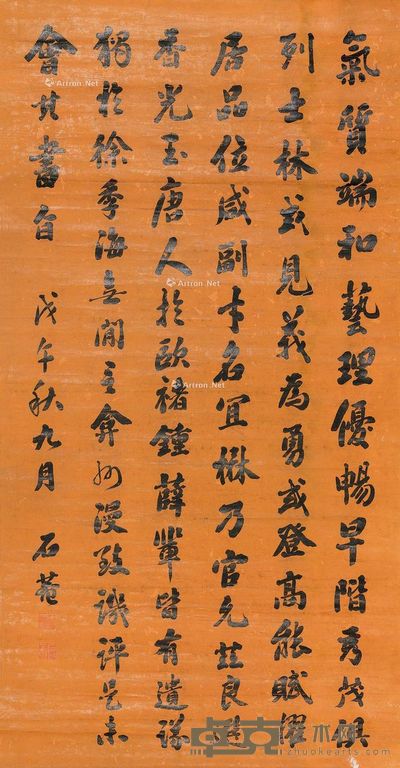 氣質端和藝理優暢早階秀茂俱
列士林或見義為勇或登高能賦擢
居品位咸副才名宜楙乃官允茲良選
香光至唐人於歐褚鍾薛輩皆有遺議
獨於徐季海無間言弇州漫致譏評是未
會其書旨 戊午秋九月 石菴
Artron.Net
Artron.Net
Artron.Net
Artron.Net
Artron.Net
术网
zhuokearts.com